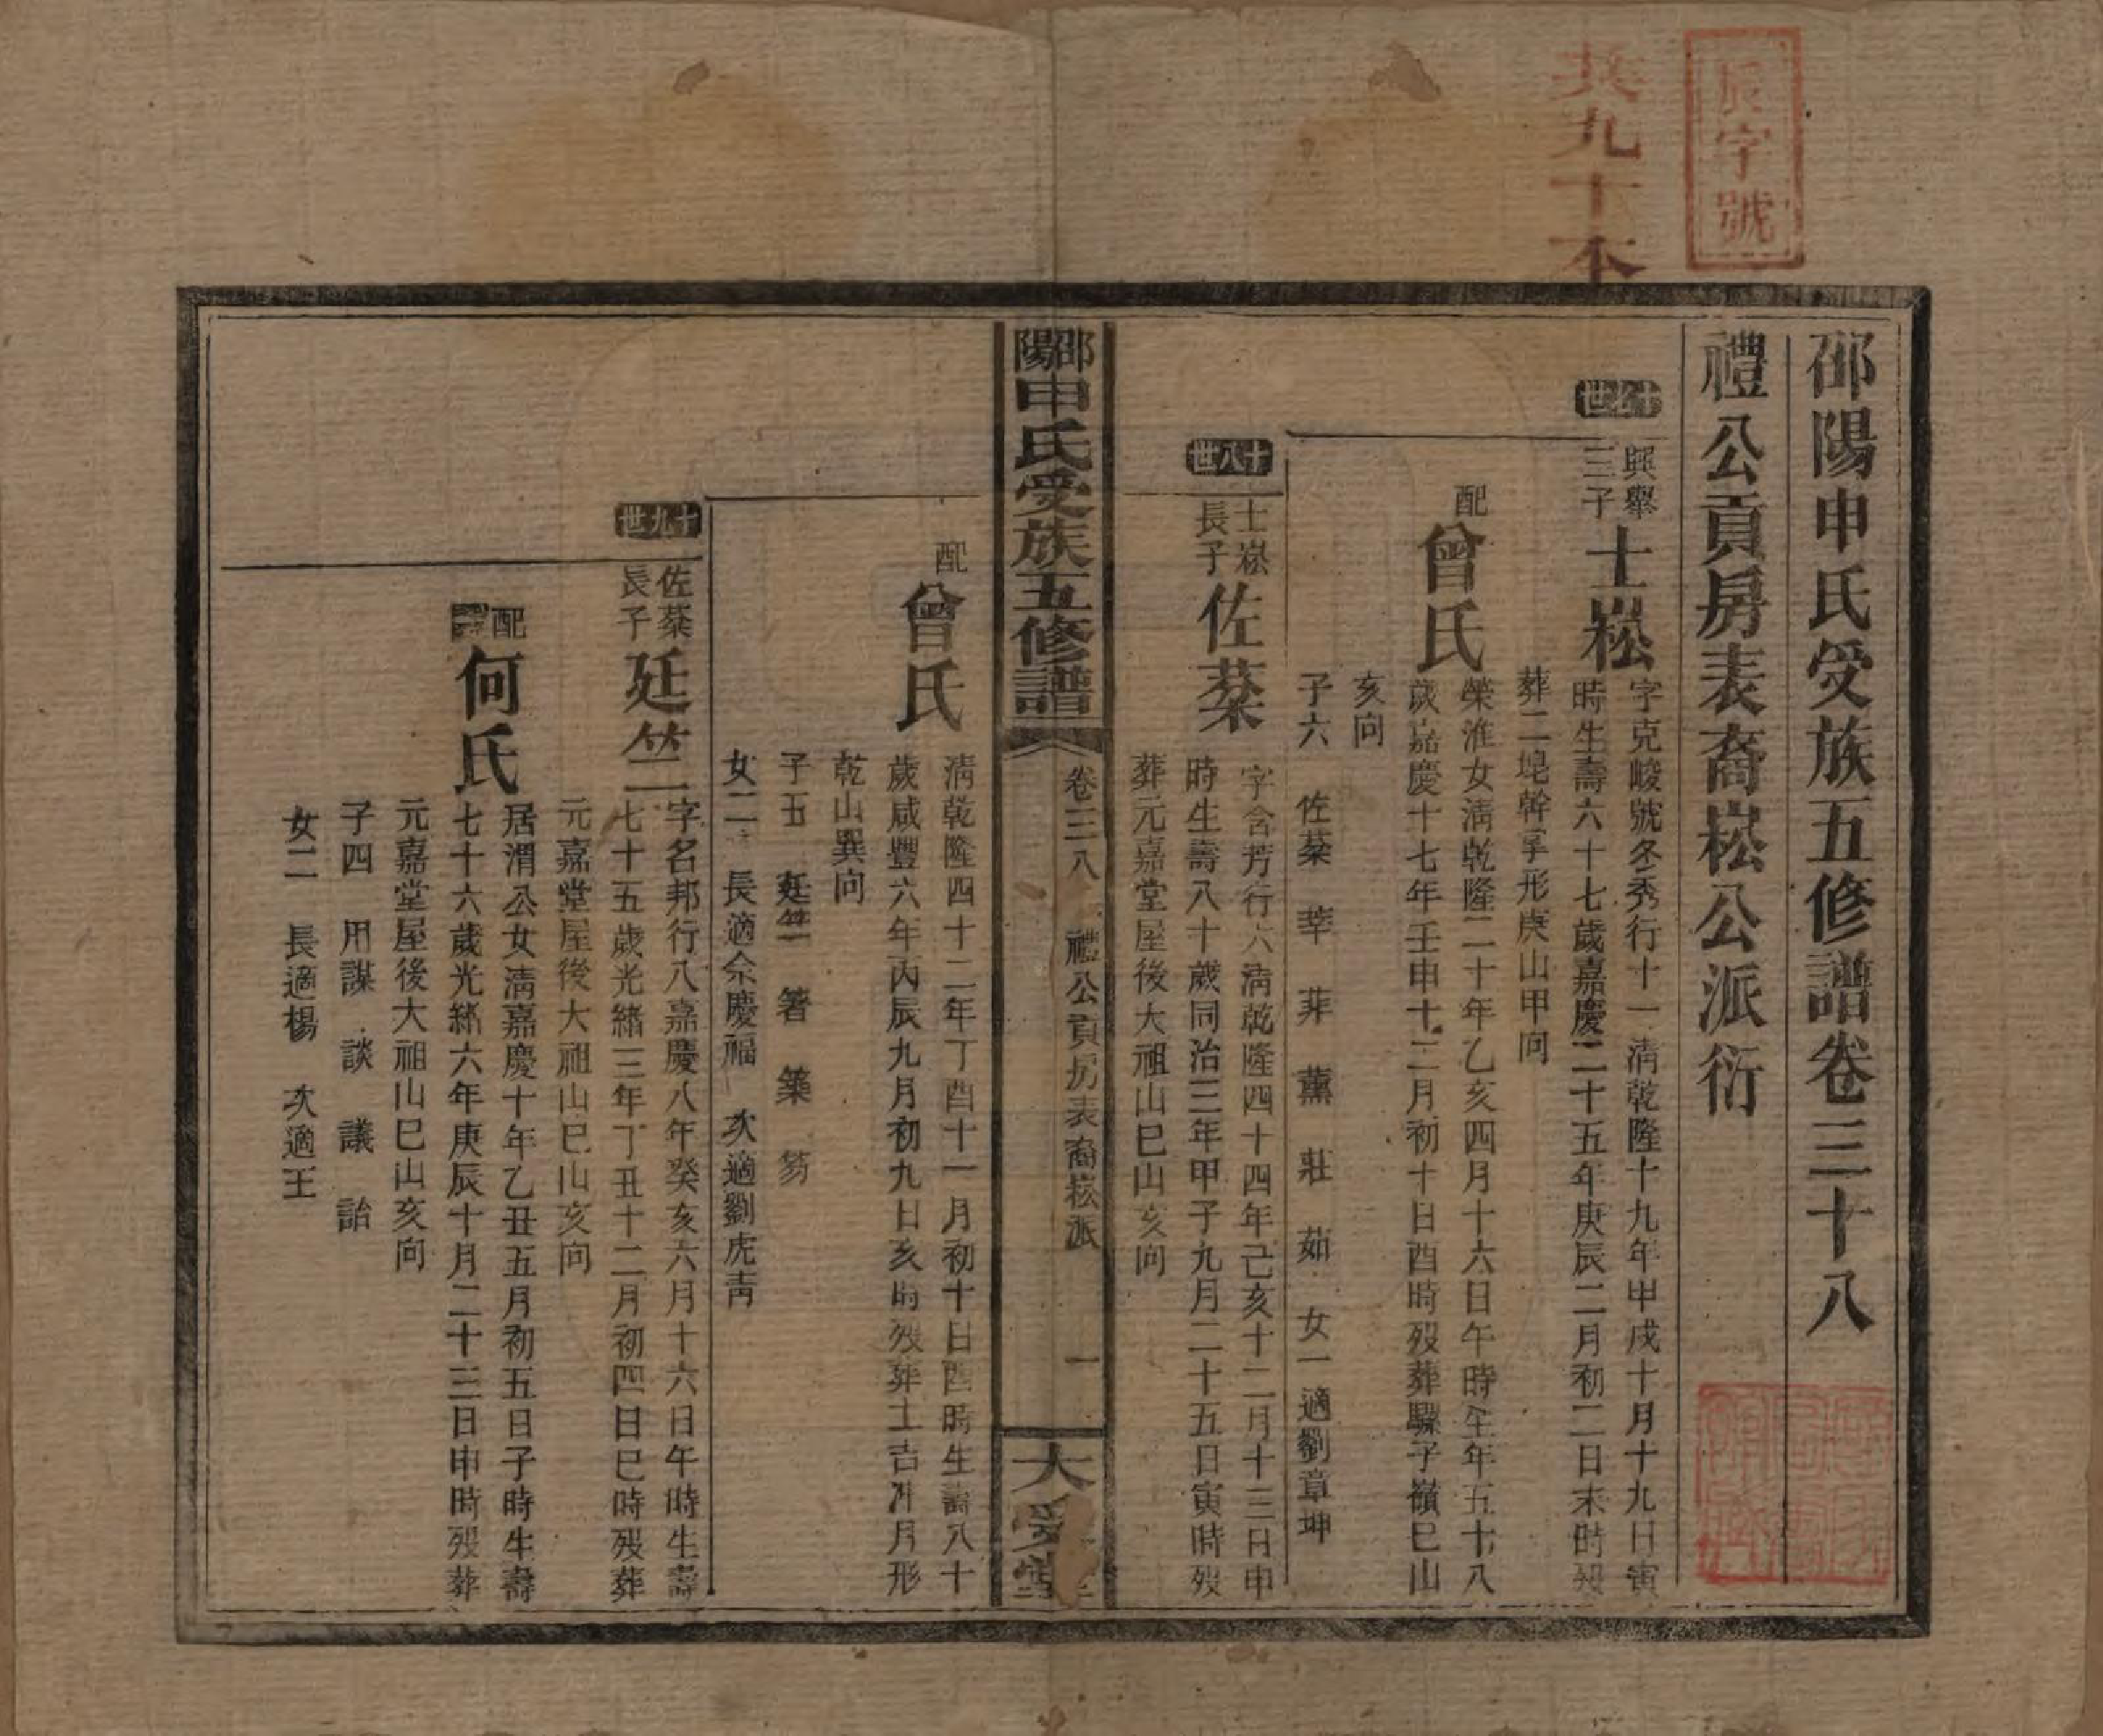 辰字號
共九十本
邵陽申氏受族五修譜卷三十八
禮公貢房表裔崧公派衍
十七世
興舉三子
士崧
字克峻號冬秀行十一清乾隆十九年甲戌十月十九日寅
時生壽六十七歲嘉慶二十五年庚辰二月初二日未時歿
葬二堍幹孚形庚山甲向
配
曾氏
榮淮女清乾隆二十年乙亥四月十六日午時生年五十八
歲嘉慶十七年壬申十二月初十日酉時歿葬騾子嶺巳山
亥向
子六 佐棻 莘 菲 薰 莊 茹 女一適劉章坤
十八世
士崧長子
佐棻
字含芳行六清乾隆四十四年己亥十二月十三日申
時生壽八十歲同治三年甲子九月二十五日寅時歿
葬元嘉堂屋後大祖山巳山亥向
邵陽申氏受族五修譜
卷三八 禮公貢房表裔崧派
一
大受堂
配
曾氏
清乾隆四十二年丁酉十一月初十日酉時生壽八十
歲咸豐六年丙辰九月初九日亥時歿葬土吉冲月形
乾山巽向
子五 廷竺 箸 築 笏
女二 長適余慶福 次適劉虎青
十九世
佐棻長子
廷竺
字名邦行八嘉慶八年癸亥六月十六日午時生壽
七十五歲光緒三年丁丑十二月初四日巳時歿葬
元嘉堂屋後大祖山巳山亥向
配
何氏
居渭公女清嘉慶十年乙丑五月初五日子時生壽
七十六歲光緒六年庚辰十月二十三日申時歿葬
元嘉堂屋後大祖山巳山亥向
子四 用謀 談 議 詒
女二 長適楊 次適王